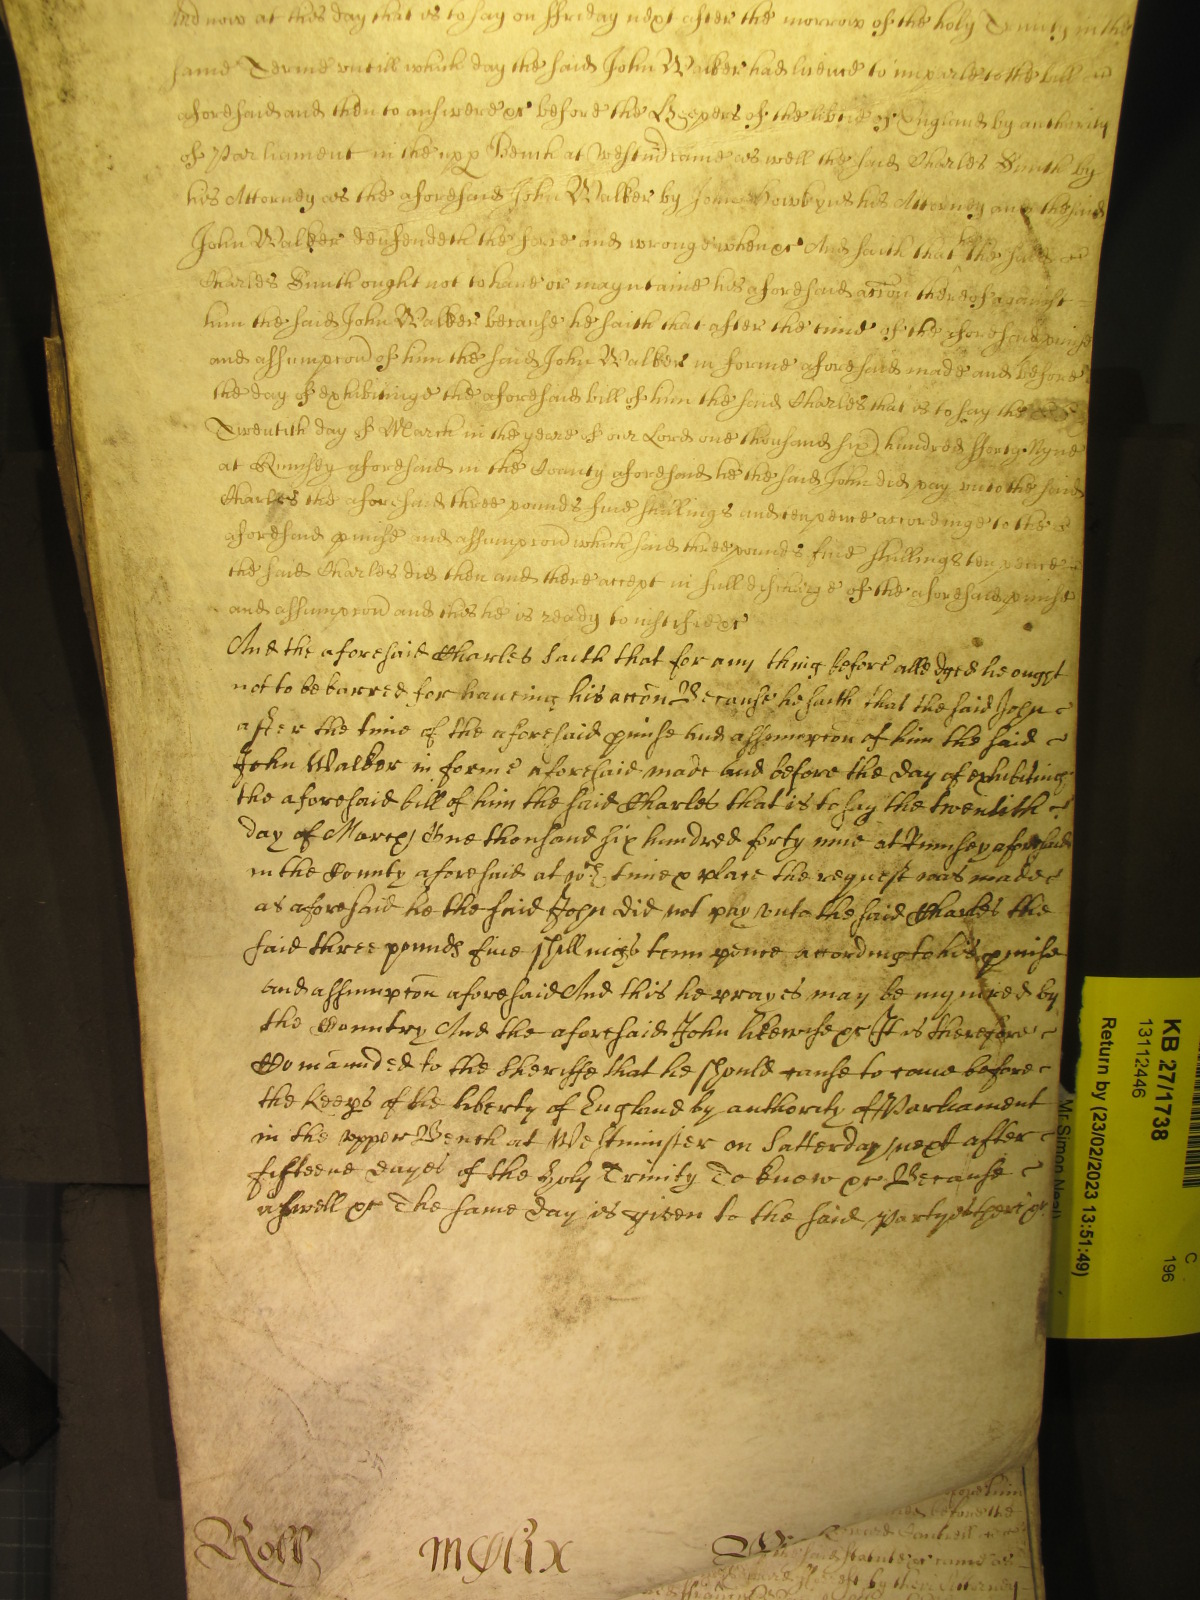 And now at this day that is to say on ffriday next after the morrow of the holy Trinity in the
same Terme untill which day the said John Walker had licence to imparle to the bill
aforesaid and then to answere &c before the Keepers of the libtie of England by authority
of Parliament in the upp Bench at Westm came as well the said Charles Smith by
his Attorney as the aforesaid John Walker by his Attorney and the said
John Walker deffendeth the force and wronge when &c And saith that the said
Charles Smith ought not to have or mayntaine his aforesaid accon thereof against
him the said John Walker because he saith that after the time of the aforesaid pmise
and assumpcon of him the said John Walker in forme aforesaid made and before
the day of exhibitinge the aforesaid bill of him the said Charles that is to say the
Twentith day of March in the yeare of our Lord one thousand six hundred fforty Nyne
at Rumsey aforesaid in the County aforesaid he the said John did pay unto the said
Charles the aforesaid three pounds five shillings and ten pence accordinge to the
aforesaid pmise and assumpcon which said three pounds five shillings ten pence
the said Charles did then and there accept in full discharge of the aforesaid pmise
and assumpcon and this he is ready to justifie &c
And the aforesaid Charles saith that for any thing before alledged he ought
not to be barred for haveing his accon Because he saith that the said John
after the time of the aforesaid pmise and assumpcon of him the said
John Walker in forme aforesaid made and before the day of exhibiting
the aforesaid bill of him the said Charles that is to say the twentith
day of March One thousand six hundred forty nine at Rumsey aforesaid
in the County aforesaid at wch time & place the request was made
as aforesaid he the said John did not pay unto the said Charles the
said three pounds five shillings tenn pence according to his pmise
and assumpcon aforesaid And this he prayes may be inquired by
the Countrey And the aforesaid John likewise &c It is therefore
Comaunded to the Sheriffe that he should cause to come before
the keeps of the liberty of England by authority of Parliament
in the upper Bench at Westminster on Satterday next after
fifteene dayes of the Holy Trinity To know &c Because
aswell &c The same day is given to the said partyes there &c
Roll mDlix
KB 27/1738
13112446
C
196
Return by (23/02/2023 13:51:49)
Mr Simon Neal